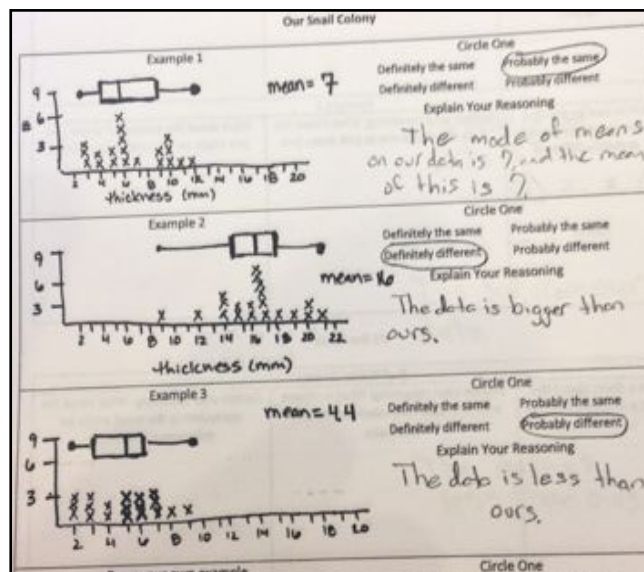 Our Snail Colony
Example 1
mean = 7
9
6
3
2 4 6 8 10 12 14 16 18 20
thickness (mm)
Circle One
Definitely the same Probably the same
Definitely different Probably different
Explain Your Reasoning
The mode of means
on our data is 7, and the mean
of this is 7.
Example 2
mean = 16
9
6
3
2 4 6 8 10 12 14 16 18 20 22
thickness (mm)
Circle One
Definitely the same Probably the same
Definitely different Probably different
Explain Your Reasoning
The data is bigger than
ours.
Example 3
mean = 4.4
9
6
3
2 4 6 8 10 12 14 16 18 20
Circle One
Definitely the same Probably the same
Definitely different Probably different
Explain Your Reasoning
The data is less than
ours.
example
Circle One